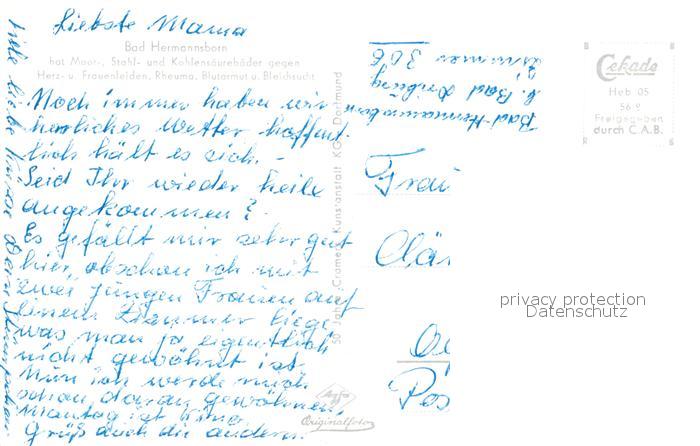 Liebste Mama
Bad Hermannsborn
hat Moor-, Stahl- und Kohlensäurebäder gegen
Herz- u. Frauenleiden, Rheuma, Blutarmut u. Bleichsucht
Noch immer haben wir
herrliches Wetter hoffent-
lich hält es sich. -
Seid Ihr wieder heile
angekommen?
Es gefällt mir sehr gut
hier, obschon ich mit
zwei jungen Frauen auf
einem Zimmer liege,
was man ja eigentlich
nicht gewöhnt ist.
Nun ich werde mich
schon daran gewöhnen.
Montag ist Kino.
Grüß auch die andern.
Viele liebe Grüße Dein
50 Jahre Cramers Kunstanstalt KG, Dortmund
Agfa
Originalfoto
Bad Hermannsborn
b. Bad Driburg
Zimmer 306
Frau
Clär
Pos
Cekade
Heb 05
56
Freigegeben
durch C.A.B.
privacy protection
Datenschutz